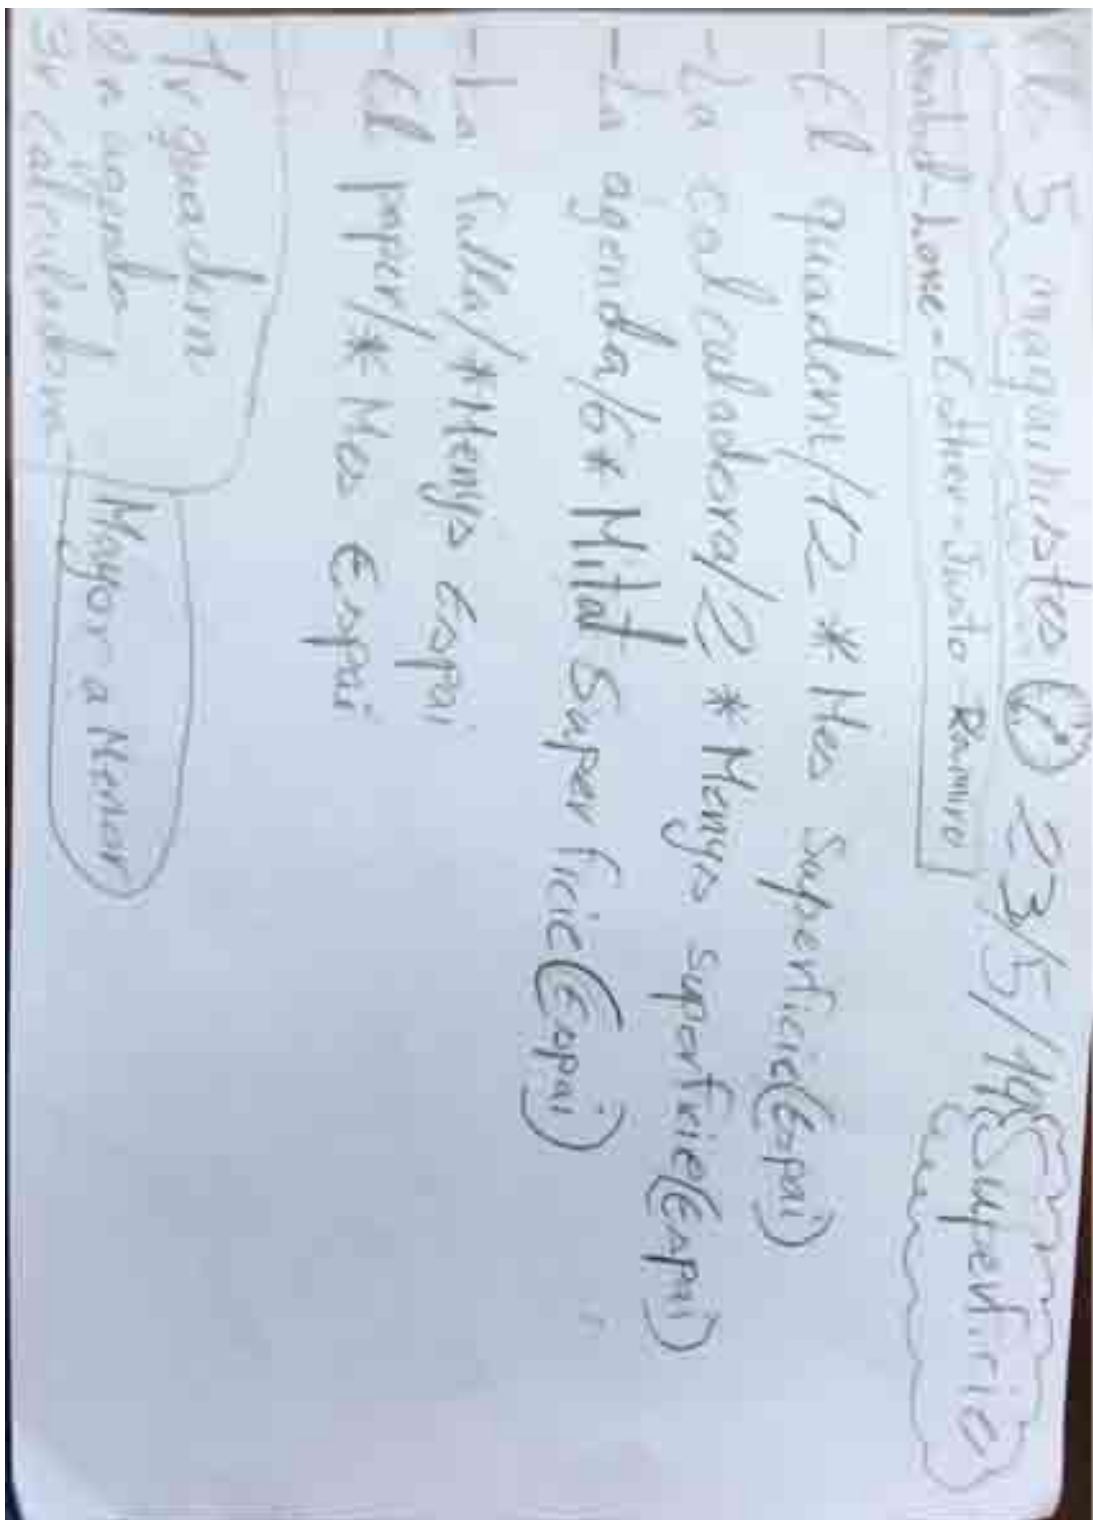 5 maquinistes 23/5/14 Superficie
Love-Esther-Justo-Ramiro
-El quadern/12 * Mes Superficie (Espai)
-La calculadora/2 * Menys superficie (Espai)
-La agenda/6 * Mitat Superficie (Espai)
-La fulla/* Menys Espai
-El paper/* Mes Espai
1r quadern
2n agenda
3r calculadora
Mayor a Menor